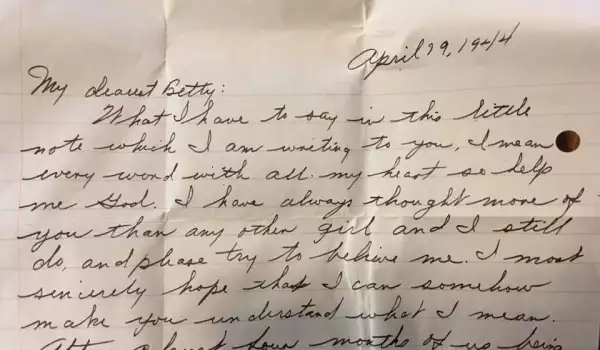 April 29, 1944
My dearest Betty:
What I have to say in this little
note which I am writing to you, I mean
every word with all my heart so help
me God. I have always thought more of
you than any other girl and I still
do, and please try to believe me. I most
sincerely hope that I can somehow
make you understand what I mean.
months of us being